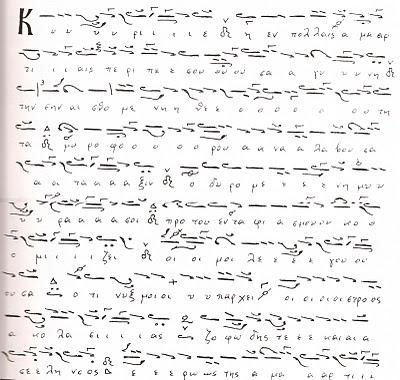 Κ υ υ υ ρι ι ι ι ε η εν πολλαις α μα αρ
τι ι ι αις πε ρι πε ε σου ου ου σα α γυ υ υ νη
την σην αι σθο με νη η θε ε ο ο ο ο ου τη
τα μυ ρο φο ο ο ο ρου α α να α λα βου σα
α αι τα α α α ξιν ο δυ ρο με ε ε ε νη μυ υ
υ υ ρα α α α σοι προ του εν τα φι α σμου ου κο ο
ο μι ι ι ι ζει οι οι μοι λε ε ε ε γου ου
ου σα ο τι νυξ μοι οι υ υ παρχει οι οι οι οι στρο ος
α κο λα σι ι ι ας ζο φω δης τε ε ε και αι α
σε ε λη νο ος ε ε ε ρω ως της α μα α αρ τι ι ι